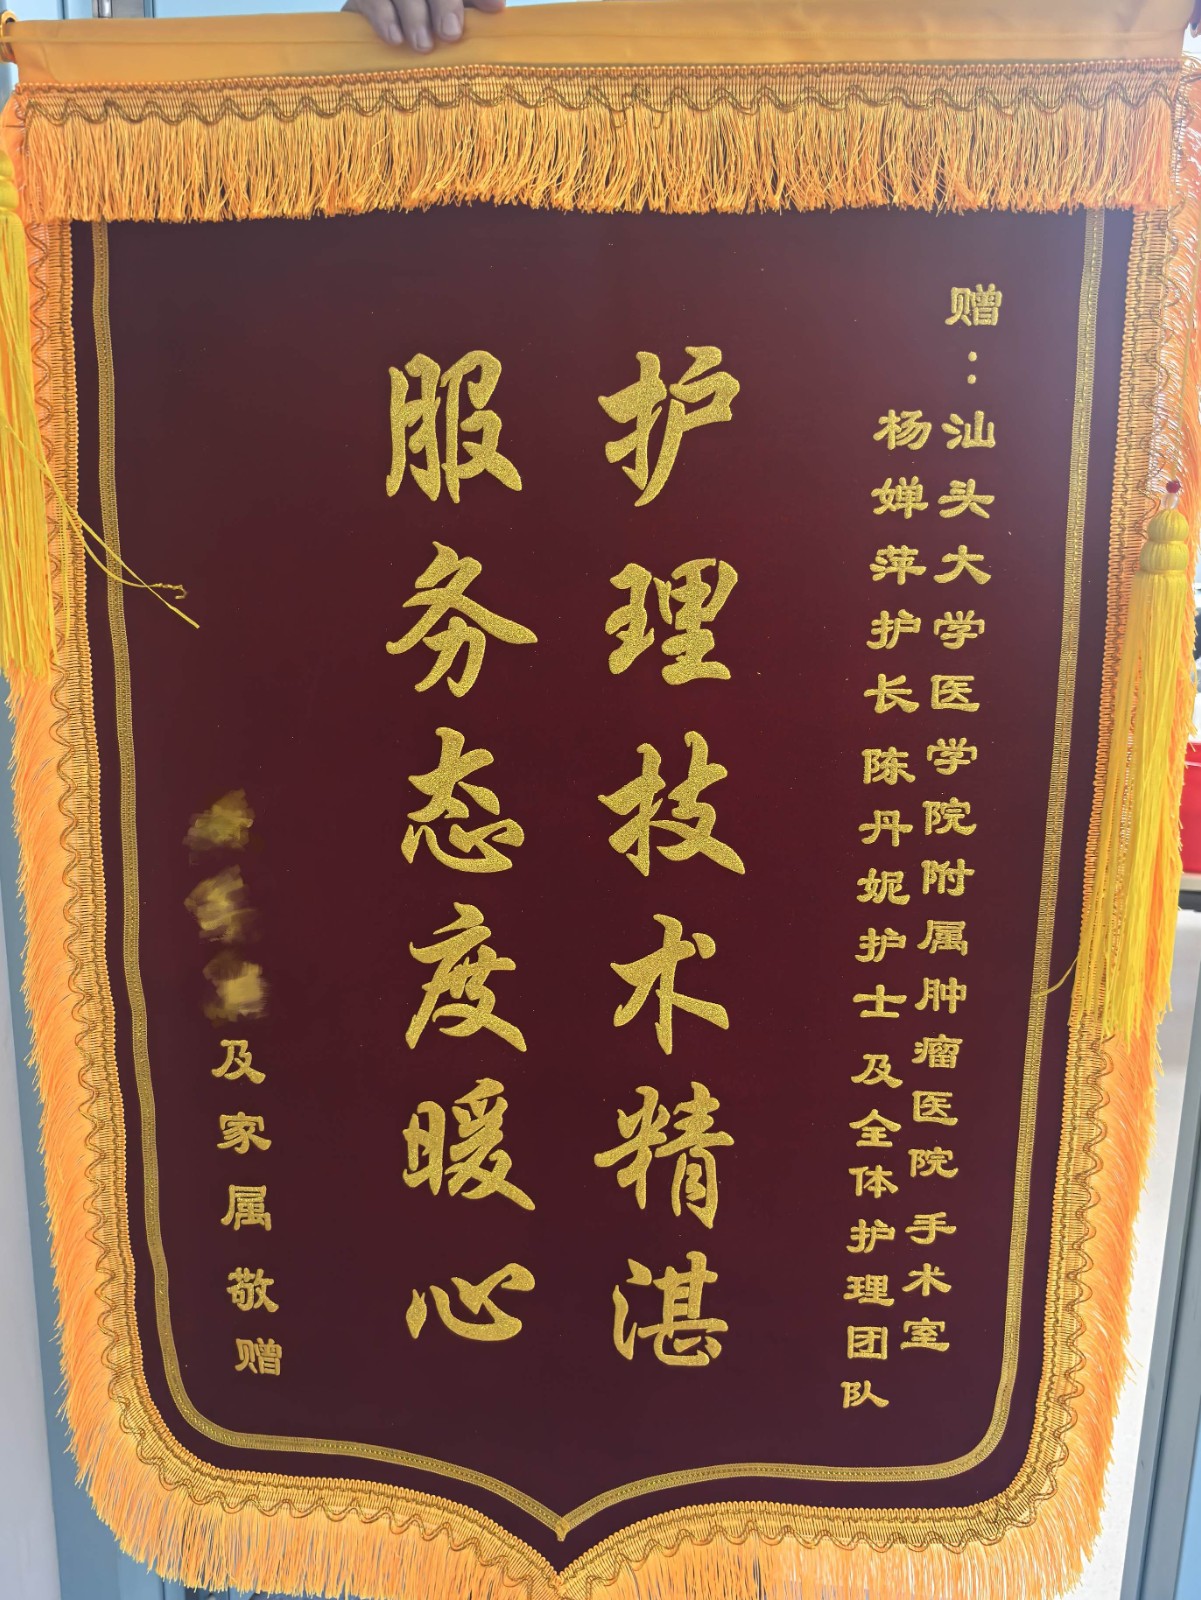 赠：汕头大学医学院附属肿瘤医院手术室
杨婵萍护长陈丹妮护士及全体护理团队
护理技术精湛
服务态度暖心
及家属敬赠